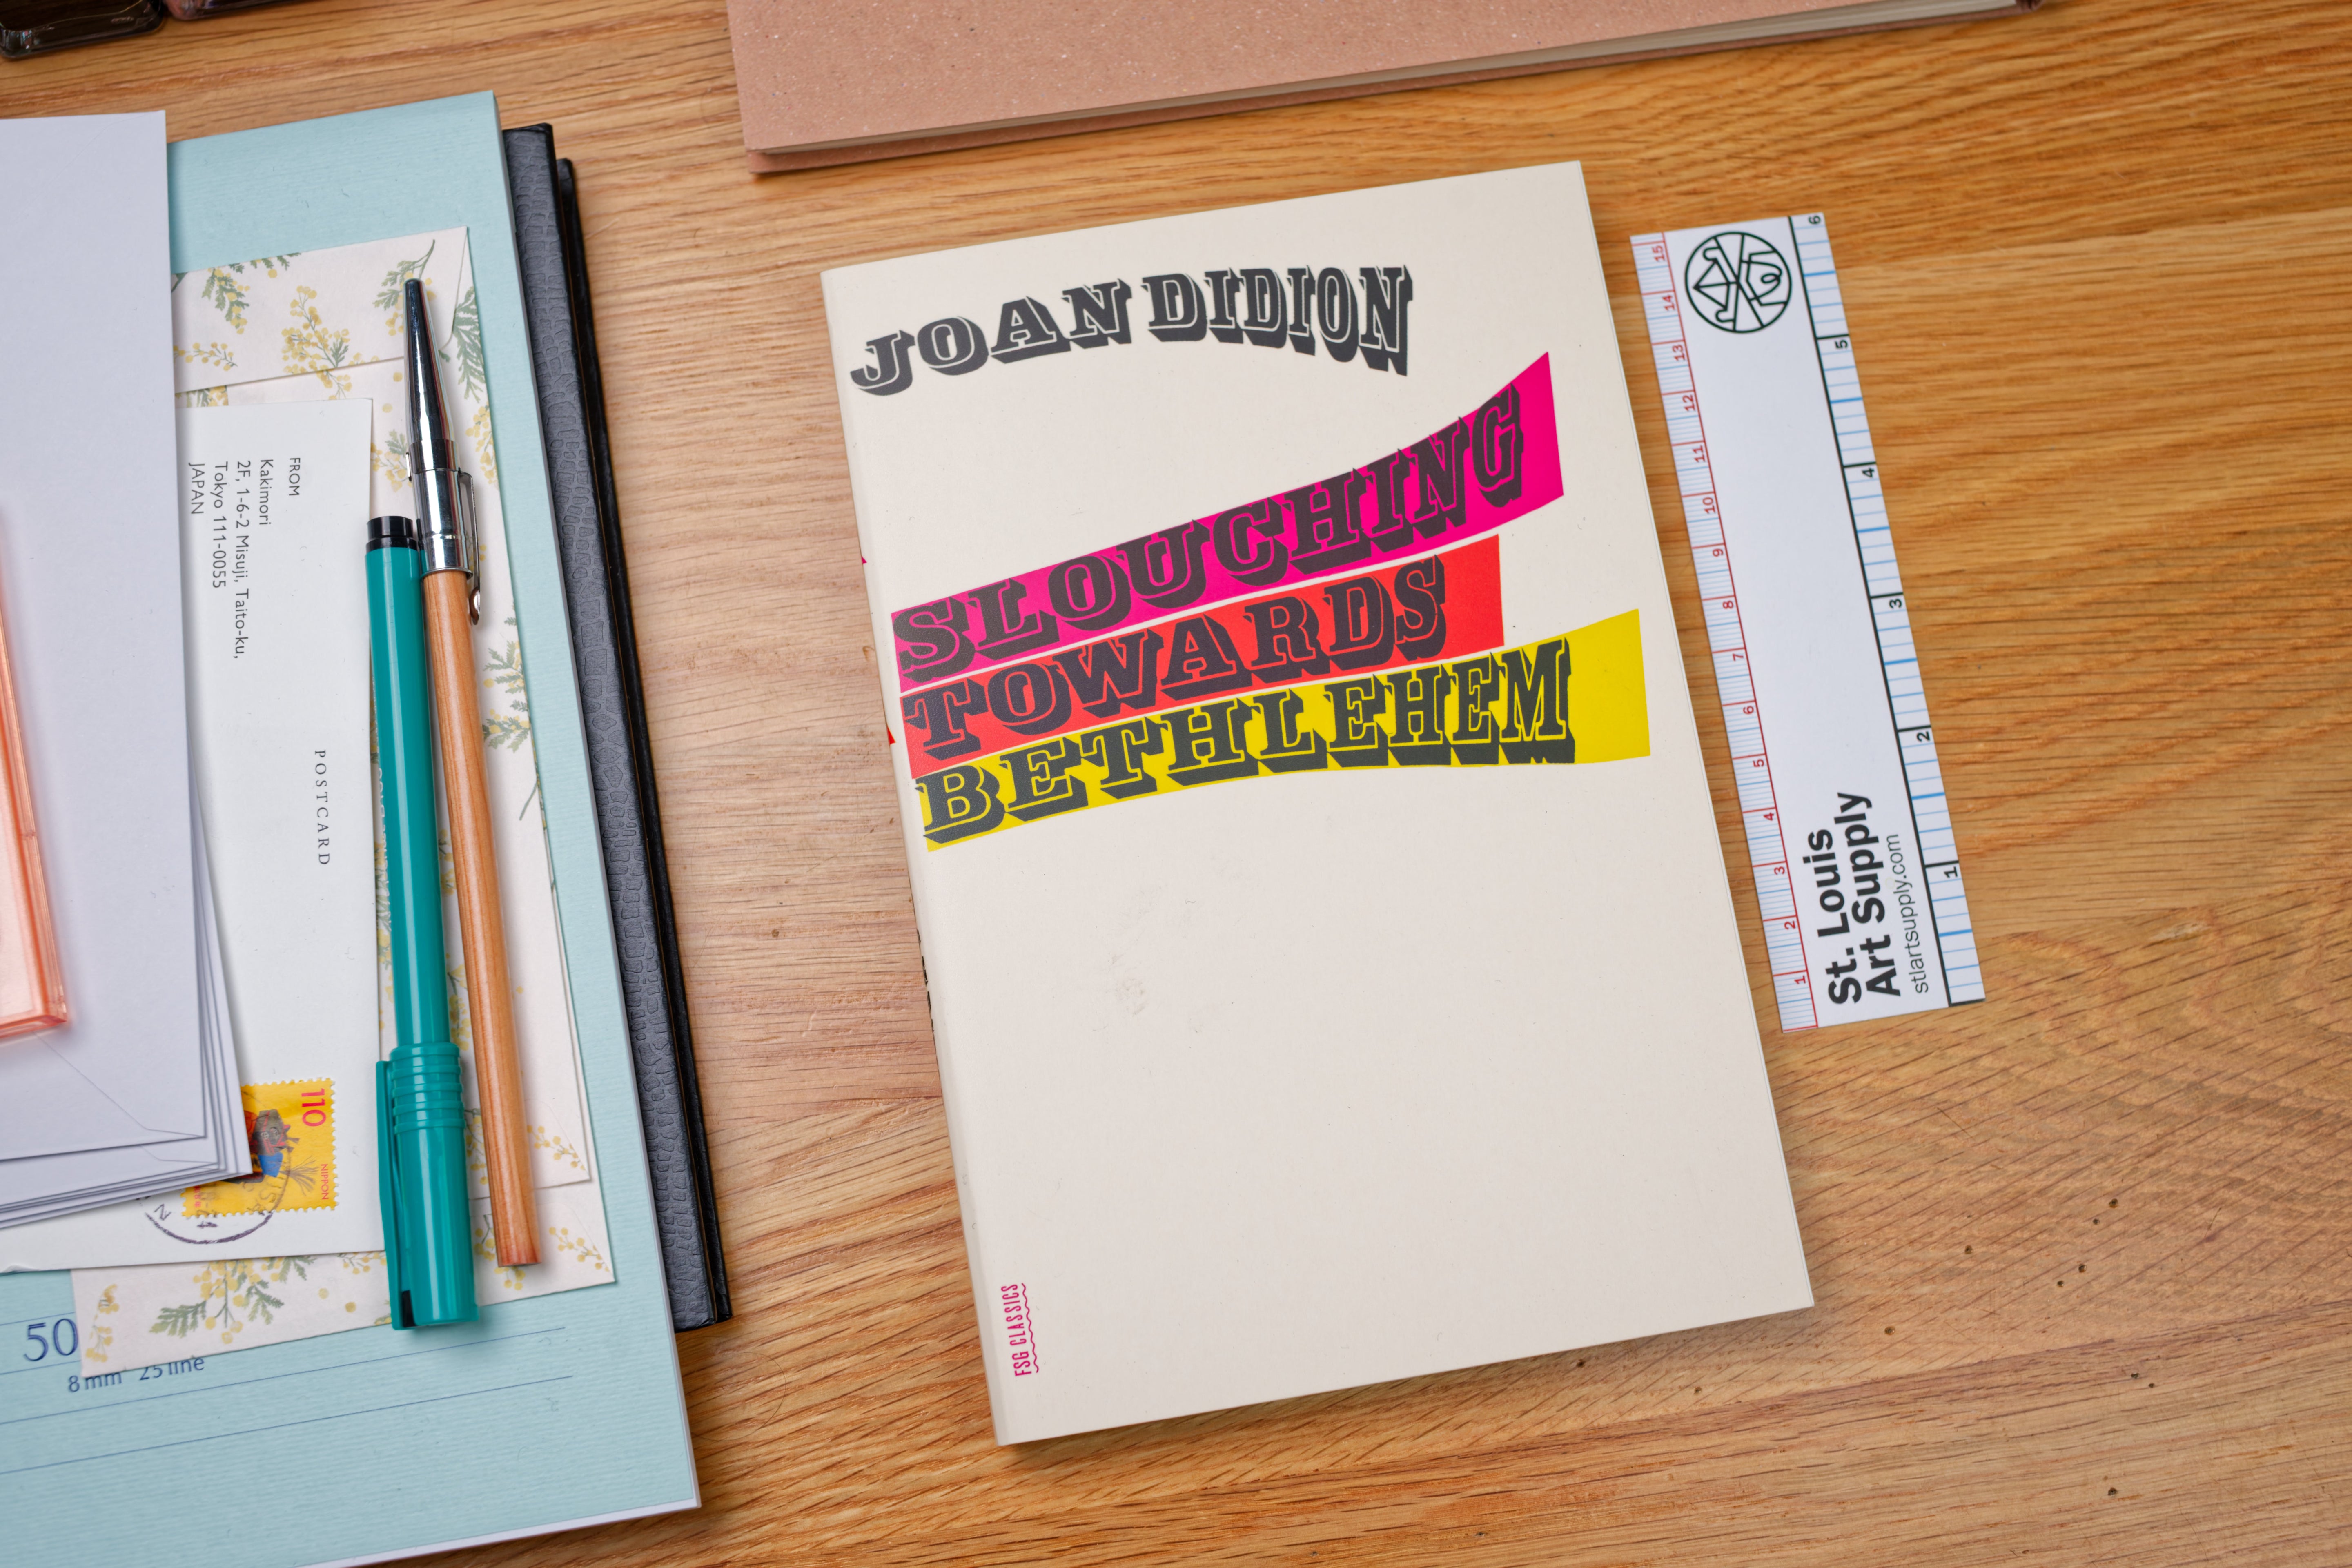 JOAN DIDION
SLOUCHING
TOWARDS
BETHLEHEM
FSG CLASSICS
FROM
Kakimori
2F, 1-6-2 Misuji, Taito-ku,
Tokyo 111-0055
JAPAN
POSTCARD
110
NIPPON
50
8mm 25 line
15 14 13 12 11 10 9 8 7 6 5 4 3 2 1
St. Louis
Art Supply
stlartsupply.com
6 5 4 3 2 1